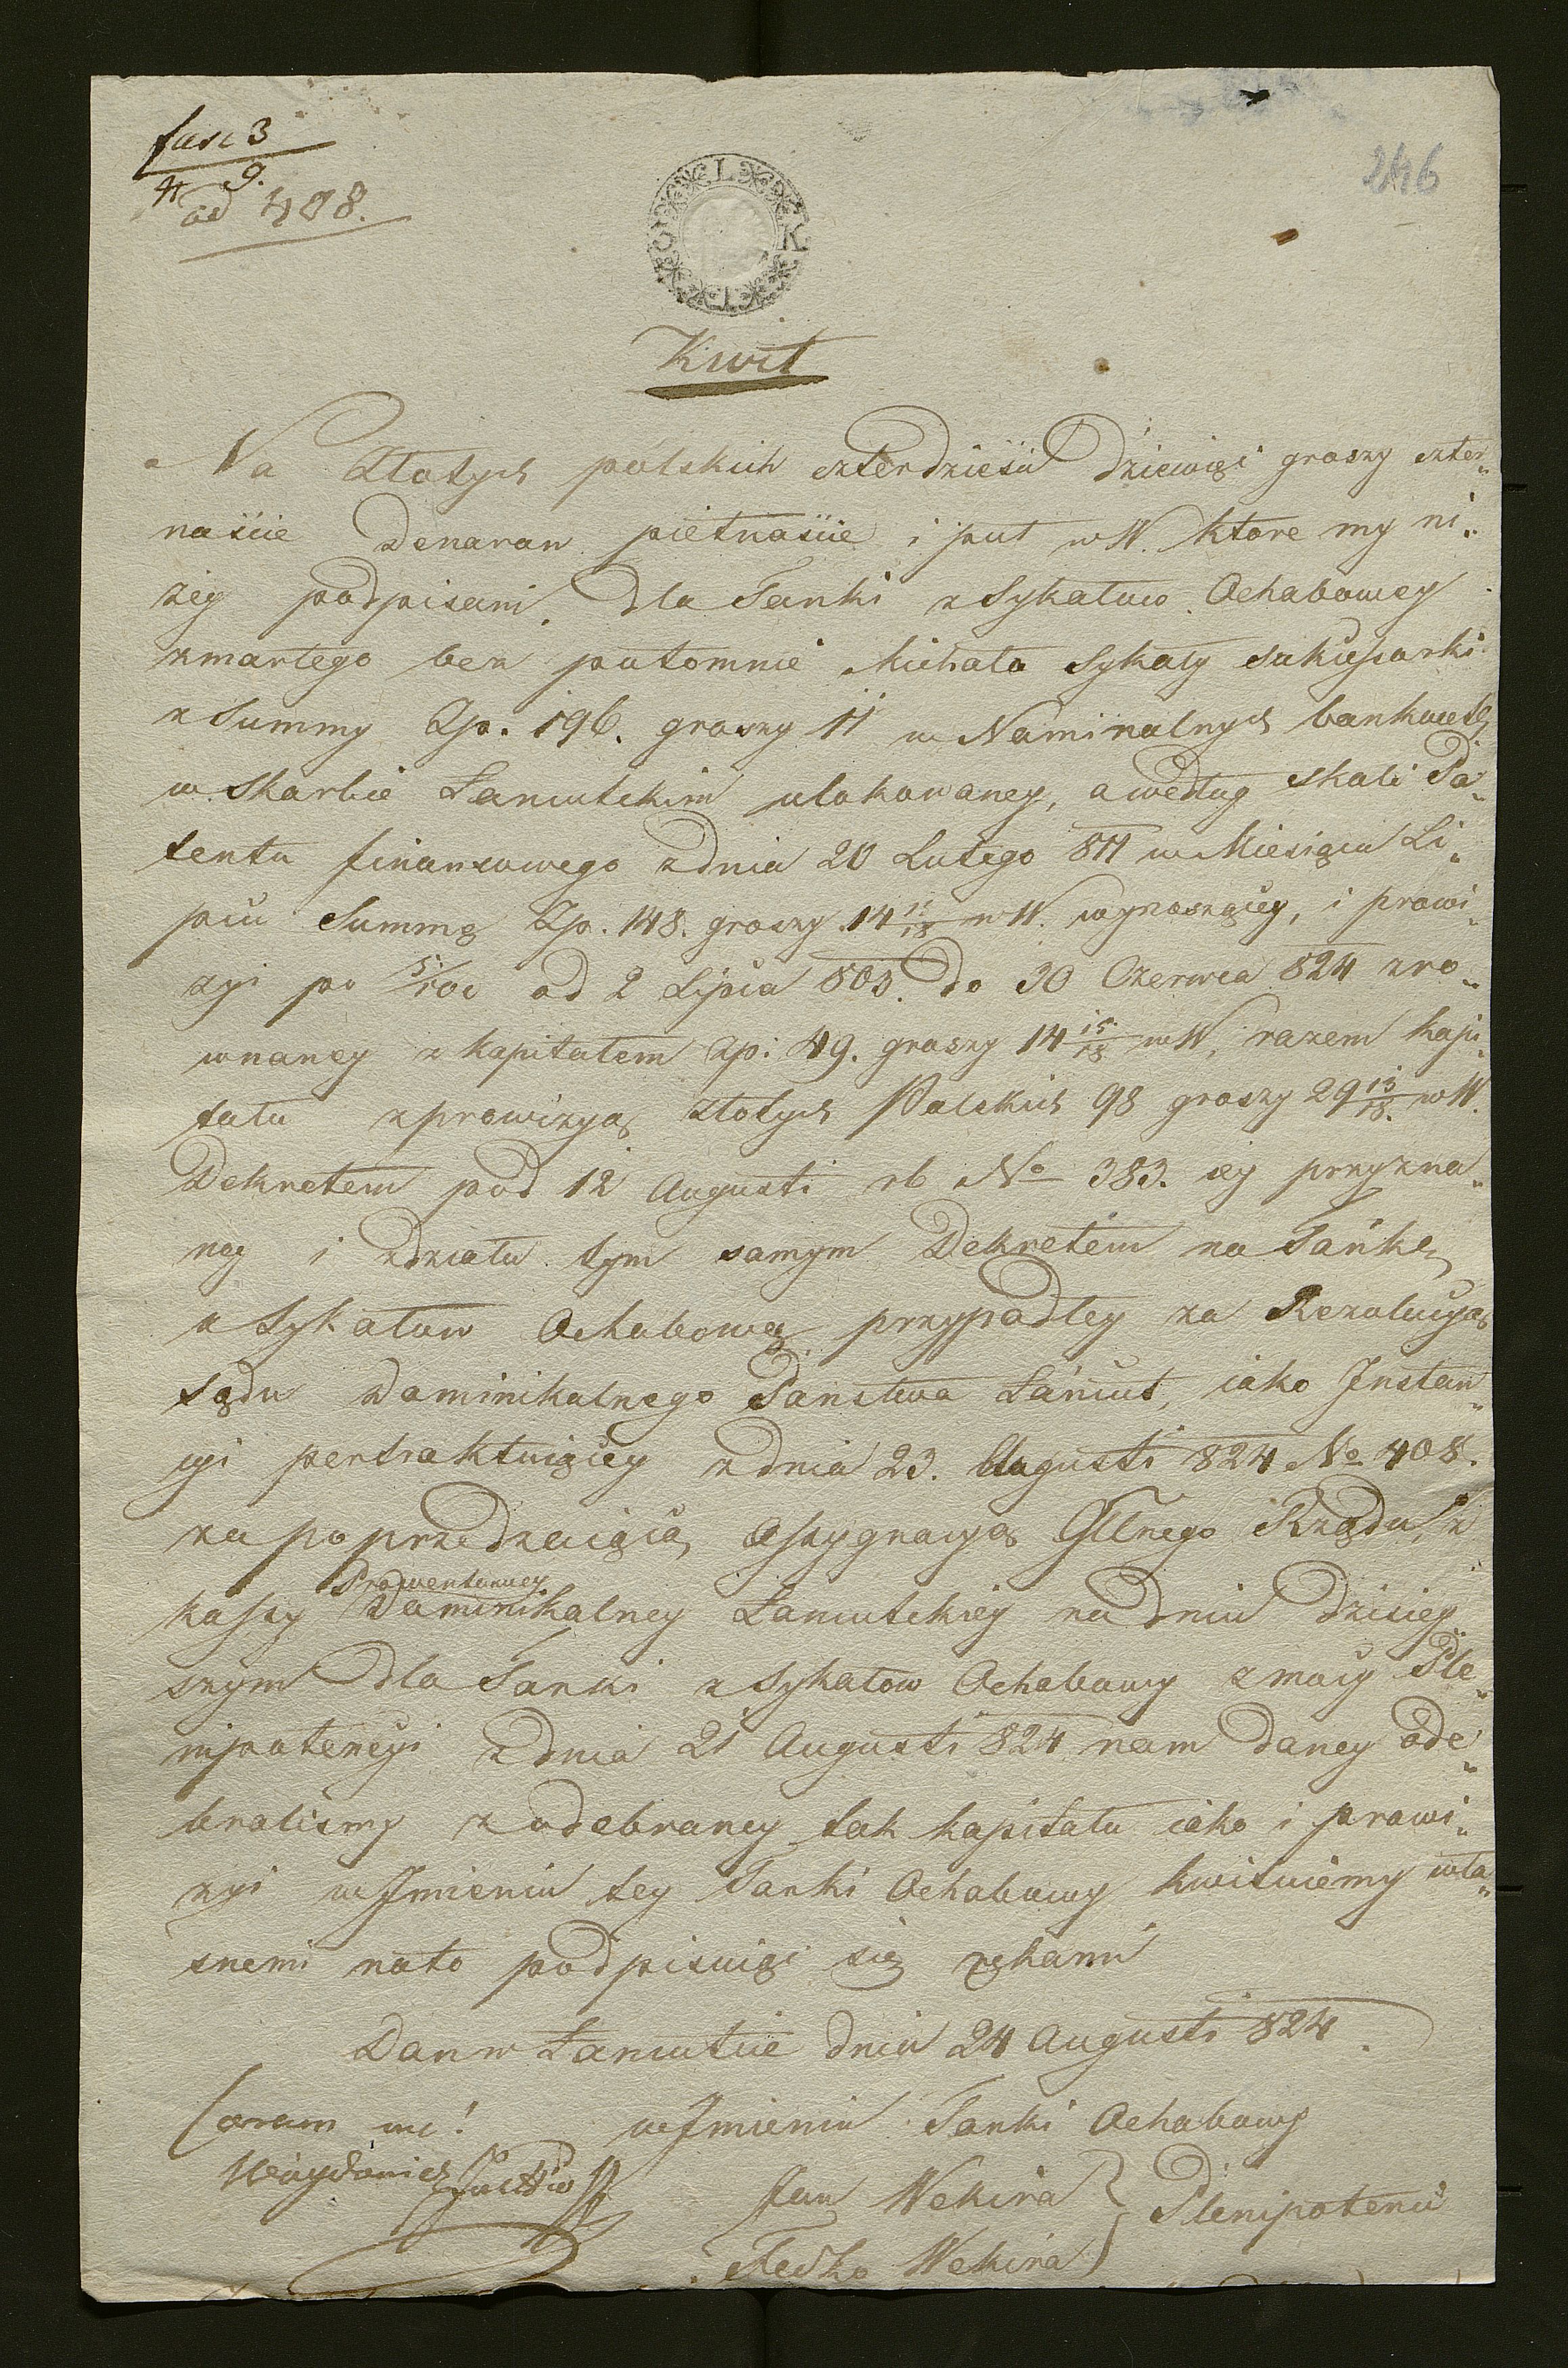 fasc 3
9.
ad 408.
246
Kwit
Na Złotych polskich czterdzieści dziewięć groszy czter„
naście Denarow piętnaście i puł w W. ktore my ni„
żey podpisani, dla Tanki z Sykałuw Ochabowey
zmarłego bez potomnie Michała Sykały sukcessorki
z Summy Zp. 196. groszy 11 w Nominalnych bankocetlach
w Skarbie Łancutskim ulokowaney, a według skali Pa„
tentu finansowego z dnia 20 Lutego 811 w Miesiącu Li„
pcu Summę Zp. 148. groszy 14 11/18 w W. wynoszącey, i prowi„
zyi po 5/100 od 2 Lipca 803. do 30 Czerwca 824 zro„
wnaney z kapitałem Zp: 49. groszy 14 15/18 w W. razem kapi„
tału z prowizyą Złotych Polskich 98 groszy 29 13/18. w W.
Dekretem pod 12 Augusti rb No 383. iey przyzna„
ney i zdziału tym samym Dekretem na Tańkę
z Sykałuw Ochabowę przypadłey za Rezolucyą
sądu Dominikalnego Państwa Łańcut, iako Instan„
cyi pertraktuiącey z dnia 23. Augusti 824 No 408.
za poprzedzaiącą Assygnacyą Gllnego Rządu, z
kassy Dominikalney Łancutskiey na dniu dzisiey„
Prowentowey
szym dla Tanki z Sykałow Ochabowy z mocy Ple„
nipotencyi z dnia 21 Augusti 824 nam daney ode„
braliśmy z odebraney tak kapitału iako i prowi„
zyi w Imieniu tey Tanki Ochabowy kwituiemy wła„
snemi na to podpisuiąc się rękami
Dan w Łancucie dnia 24 Augusti 824.
Coram me!
w Imieniu Tanki Ochabowy
Justitz
Jan Wekira
Fedko Wekira
} Plenipotenci